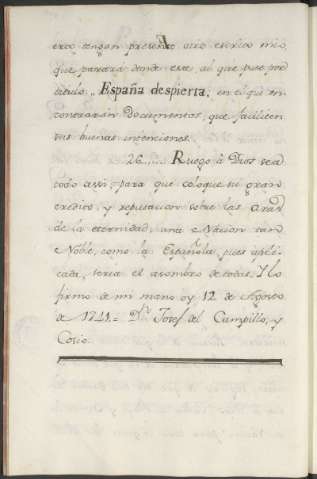 tengan presente otro escrito mio,
que parará donde este, al que puse por
titulo, España despierta, en el que en-
contrarán Documentos, que faciliten
sus buenas intenciones.
26..... Ruego à Dios sea
todo assi, para que coloque su gran
credito, y reputacion sobre las Aras
de la eternidad, una Nacion tan
Noble, como la Española, pues apli-
cada, seria el asombro de todas. Y lo
firmo de mi mano oy 12 de Agosto
de 1741 = Dn. Josef del Campillo, y
Cosio.